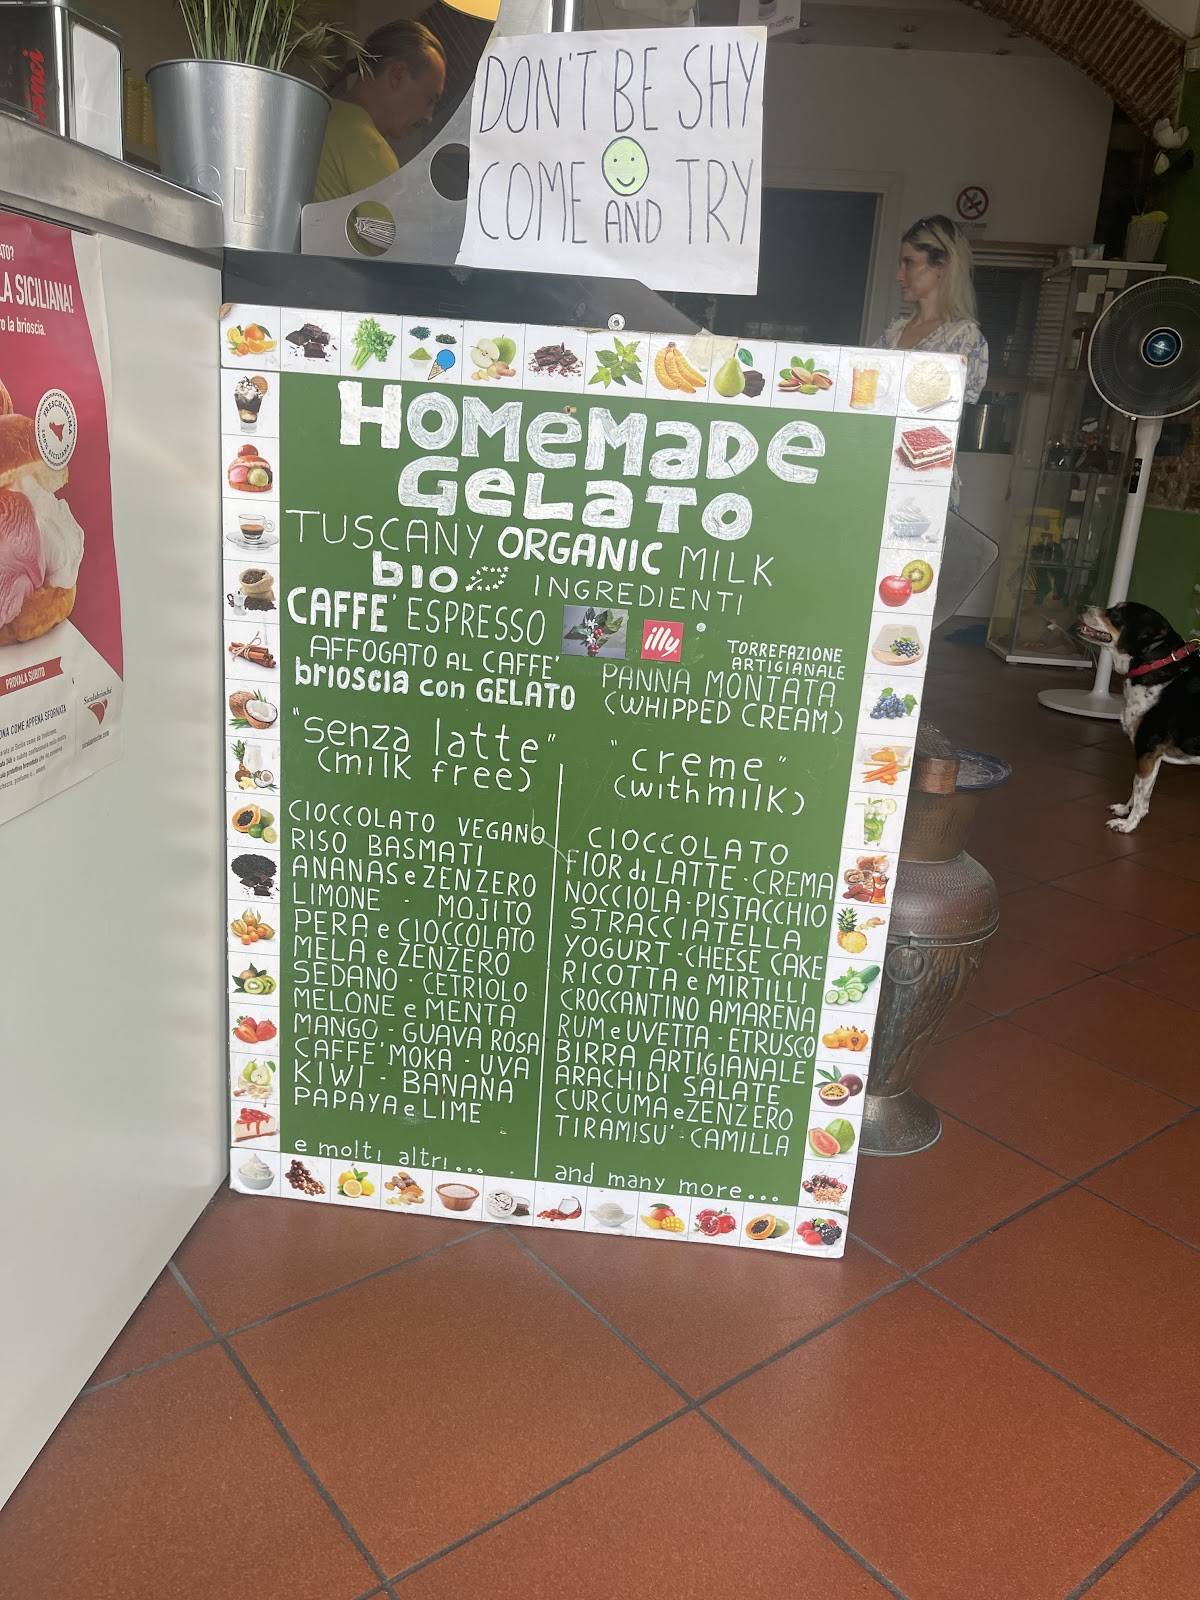 DON'T BE SHY
COME AND TRY
HOMEMADE
GELATO
TUSCANY ORGANIC MILK
bio INGREDIENTI
CAFFE' ESPRESSO
illy
AFFOGATO AL CAFFE'
TORREFAZIONE
ARTIGIANALE
brioscia con GELATO
PANNA MONTATA
(WHIPPED CREAM)
"senza latte"
(milk free)
CIOCCOLATO VEGANO
RISO BASMATI
ANANAS e ZENZERO
LIMONE - MOJITO
PERA e CIOCCOLATO
MELA e ZENZERO
SEDANO - CETRIOLO
MELONE e MENTA
MANGO - GUAVA ROSA
CAFFE' MOKA - UVA
KIWI - BANANA
PAPAYA e LIME
e molti altri...
"creme"
(with milk)
CIOCCOLATO
FIOR di LATTE - CREMA
NOCCIOLA - PISTACCHIO
STRACCIATELLA
YOGURT - CHEESE CAKE
RICOTTA e MIRTILLI
CROCCANTINO AMARENA
RUM e UVETTA - ETRUSCO
BIRRA ARTIGIANALE
ARACHIDI SALATE
CURCUMA e ZENZERO
TIRAMISU' - CAMILLA
and many more...
LA SICILIANA!
la brioscia.
FRESCHISSIMA
PROVALA SUBITO
COME APPENA SFORNATA